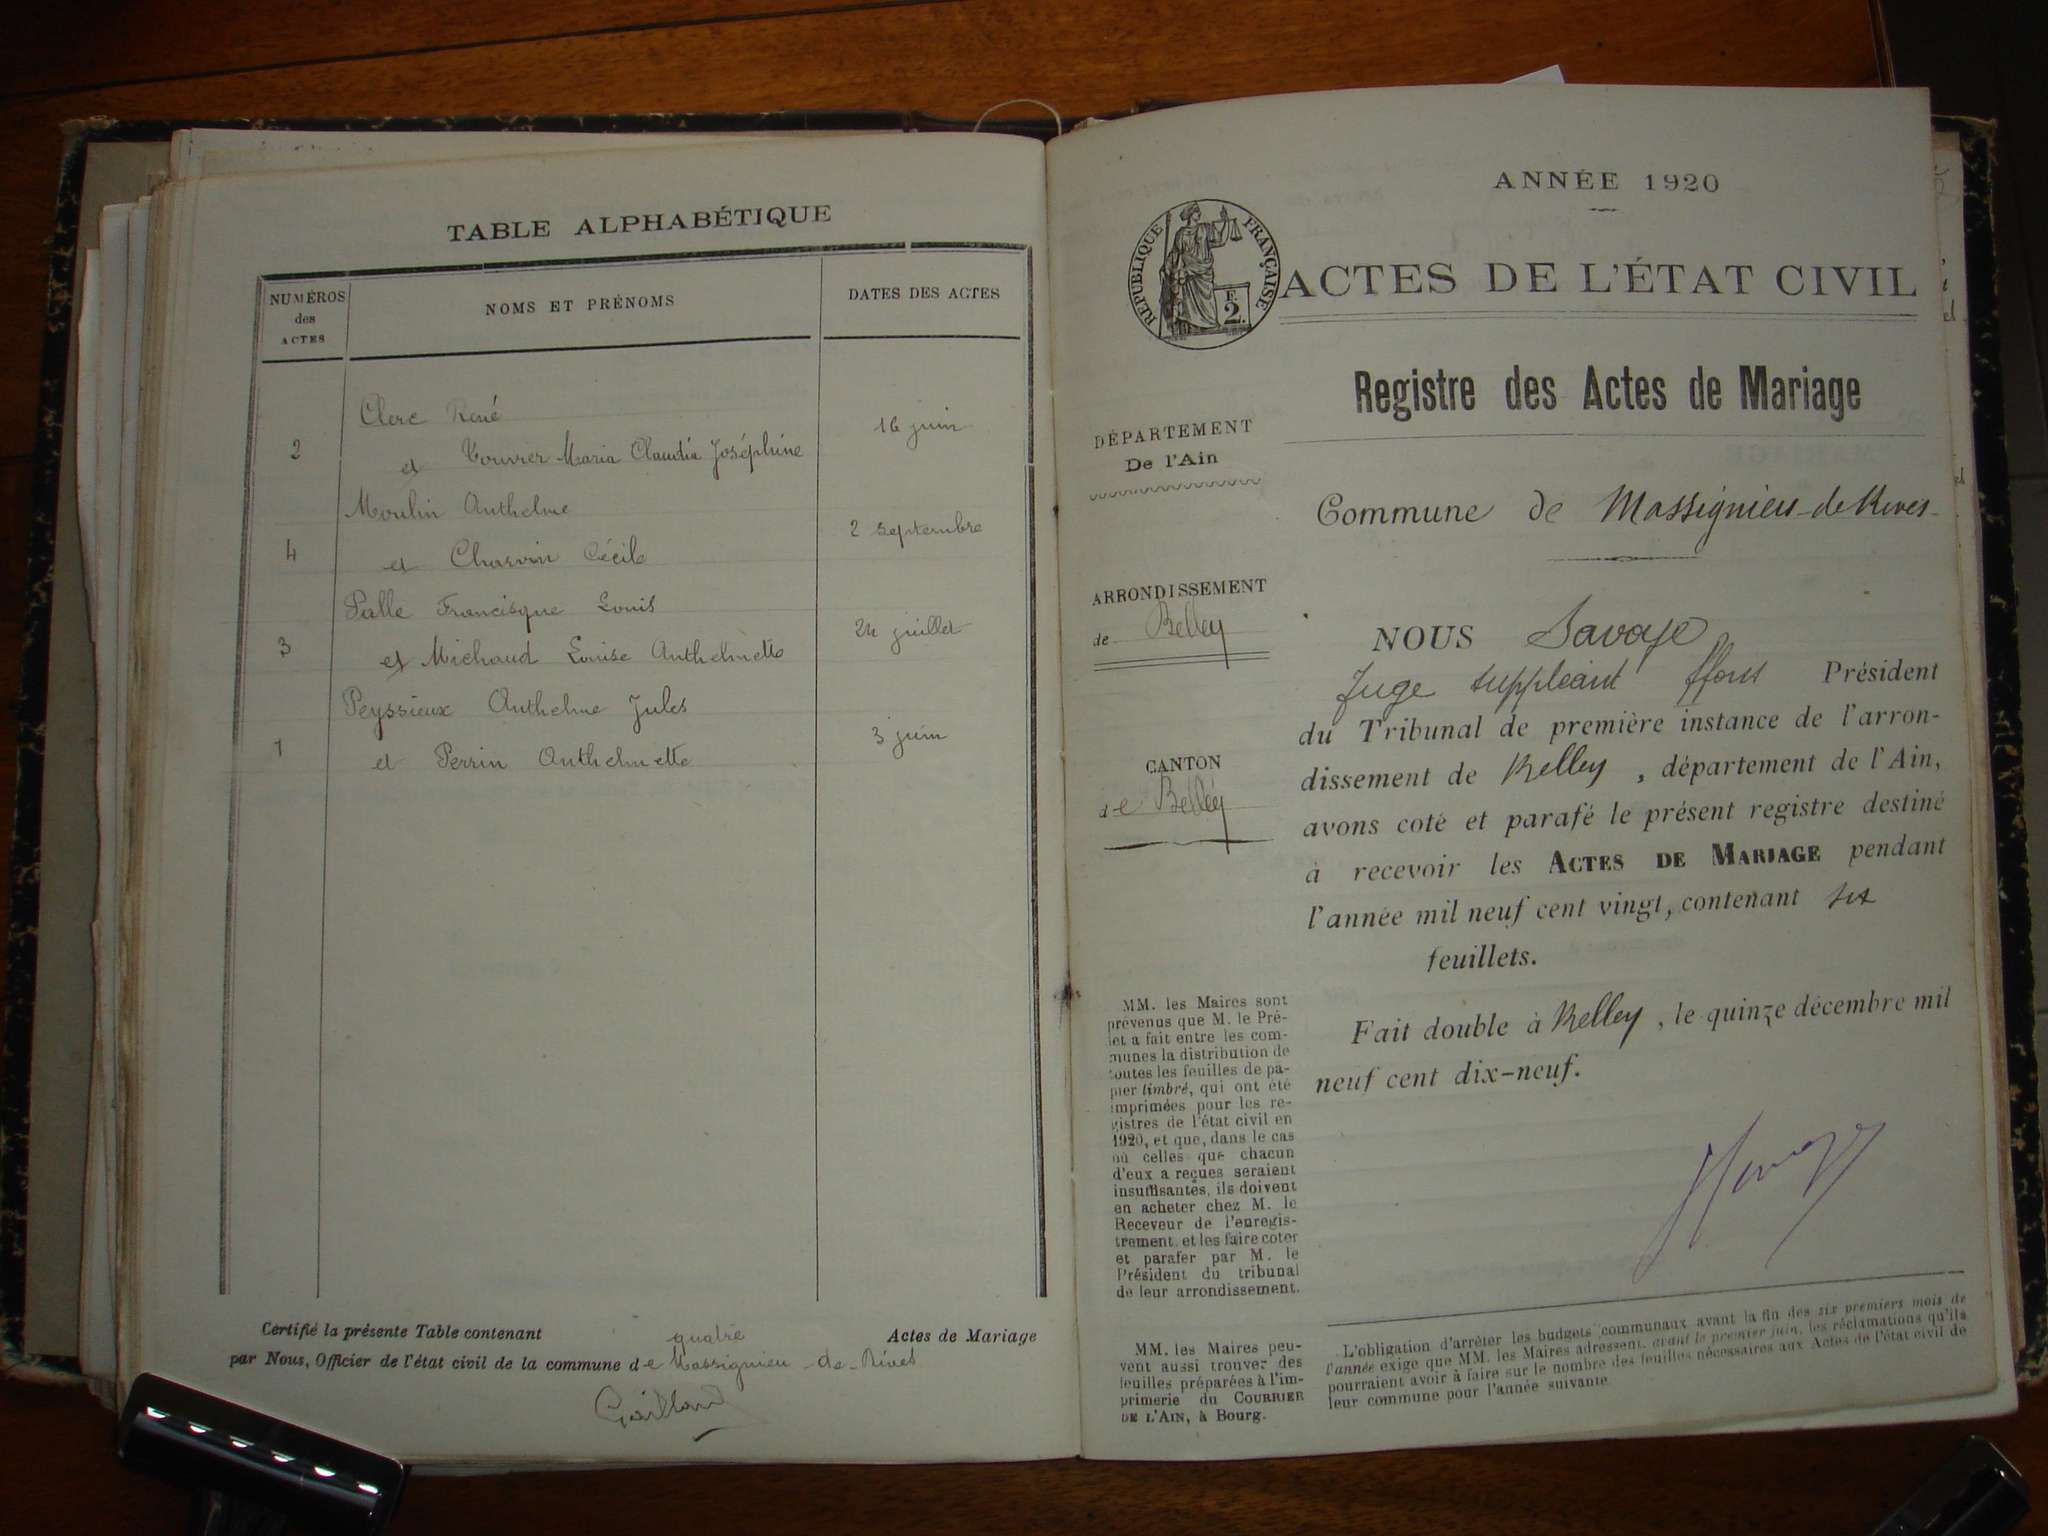 TABLE ALPHABÉTIQUE
NUMÉROS
des
ACTES
NOMS ET PRÉNOMS
DATES DES ACTES
Clerc René
2
et Touvrier Maria Claudia Joséphine
16 juin
Moulin Anthelme
4
et Charvin Cécile
2 septembre
Palle Francisque Louis
3
et Michaud Louise Anthelmette
24 juillet
Peyssieux Anthelme Jules
1
et Perrin Anthelmette
3 juin
Certifié la présente Table contenant quatre Actes de Mariage
par Nous, Officier de l'état civil de la commune de Massignieu-de-Rives
Gaillard
ANNÉE 1920
RÉPUBLIQUE FRANÇAISE
F.
2.
ACTES DE L'ÉTAT CIVIL
Registre des Actes de Mariage
DÉPARTEMENT
De l'Ain
Commune de Massignieu-de-Rives
ARRONDISSEMENT
de Belley
CANTON
de Belley
NOUS Savoye
Juge suppléant ffons Président
du Tribunal de première instance de l'arron-
dissement de Belley, département de l'Ain,
avons coté et parafé le présent registre destiné
à recevoir les ACTES DE MARIAGE pendant
l'année mil neuf cent vingt, contenant six
feuillets.
Fait double à Belley, le quinze décembre mil
neuf cent dix-neuf.
MM. les Maires sont
prévenus que M. le Pré-
fet a fait entre les com-
munes la distribution de
toutes les feuilles de pa-
pier timbré, qui ont été
imprimées pour les re-
gistres de l'état civil en
1920, et que, dans le cas
où celles que chacun
d'eux a reçues seraient
insuffisantes, ils doivent
en acheter chez M. le
Receveur de l'enregis-
trement, et les faire coter
et parafer par M. le
Président du tribunal
de leur arrondissement.
MM. les Maires peu-
vent aussi trouver des
feuilles préparées à l'im-
primerie du COURRIER
DE L'AIN, à Bourg.
L'obligation d'arrêter les budgets communaux avant la fin des six premiers mois de
l'année exige que MM. les Maires adressent, avant le premier juin, les réclamations qu'ils
pourraient avoir à faire sur le nombre des feuilles nécessaires aux Actes de l'état civil de
leur commune pour l'année suivante.